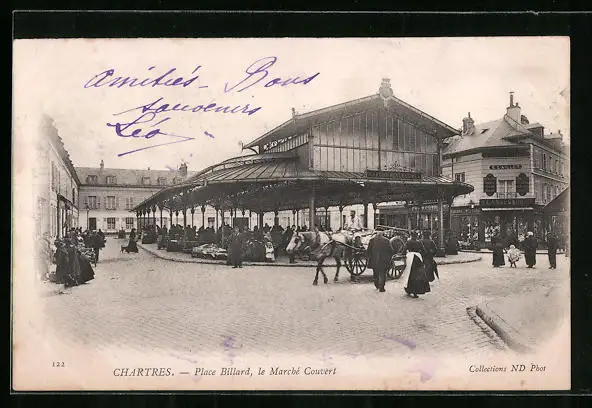 Amitiés - Bons
souvenirs
Léo
122
CHARTRES. — Place Billard, le Marché Couvert
Collections ND Phot